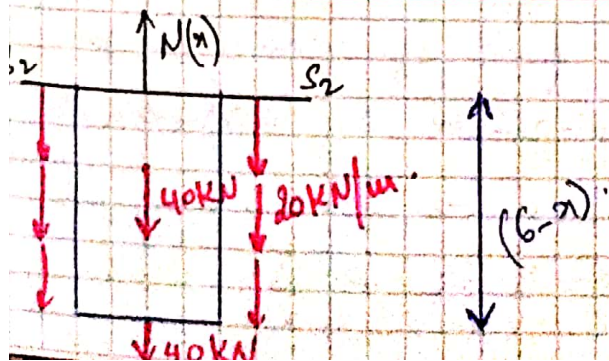 N(x)
S2
S2
40KN
20KN/m.
(6-x)
40KN